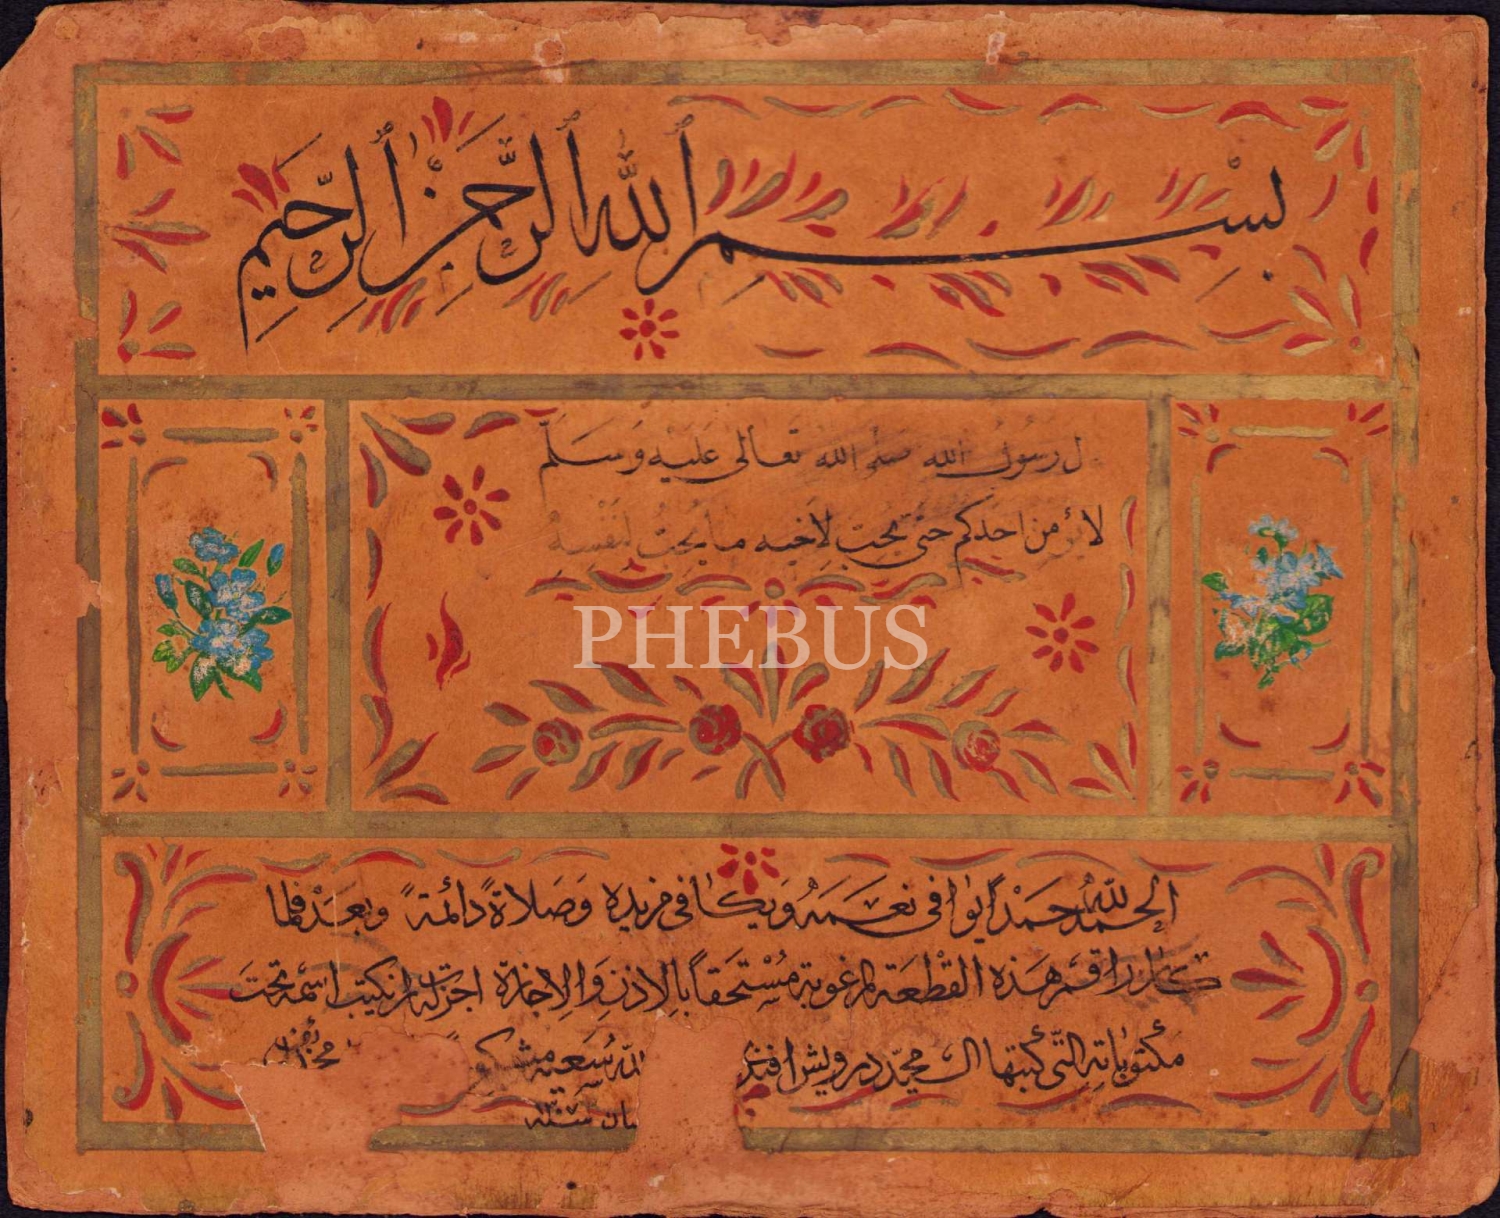 بِسْمِ ٱللّٰهِ ٱلرَّحْمٰنِ ٱلرَّحِيمِ
ل رسول الله صلى الله تعالى عليه وسلم
لا يؤمن احدكم حتى يحب لاخيه ما يحب لنفسه
PHEBUS
الحمد لله حمدا يوافى نعمه ويكافى مزيده وصلاة دائمة وبعد فلما
كان راقم هذه القطعة المرغوبة مستحقا بالاذن والاجازة اجزت له ان يكتب اسمه تحت
مكتوباته التى كتبتها محمد درويش افندى سعيه
سنة